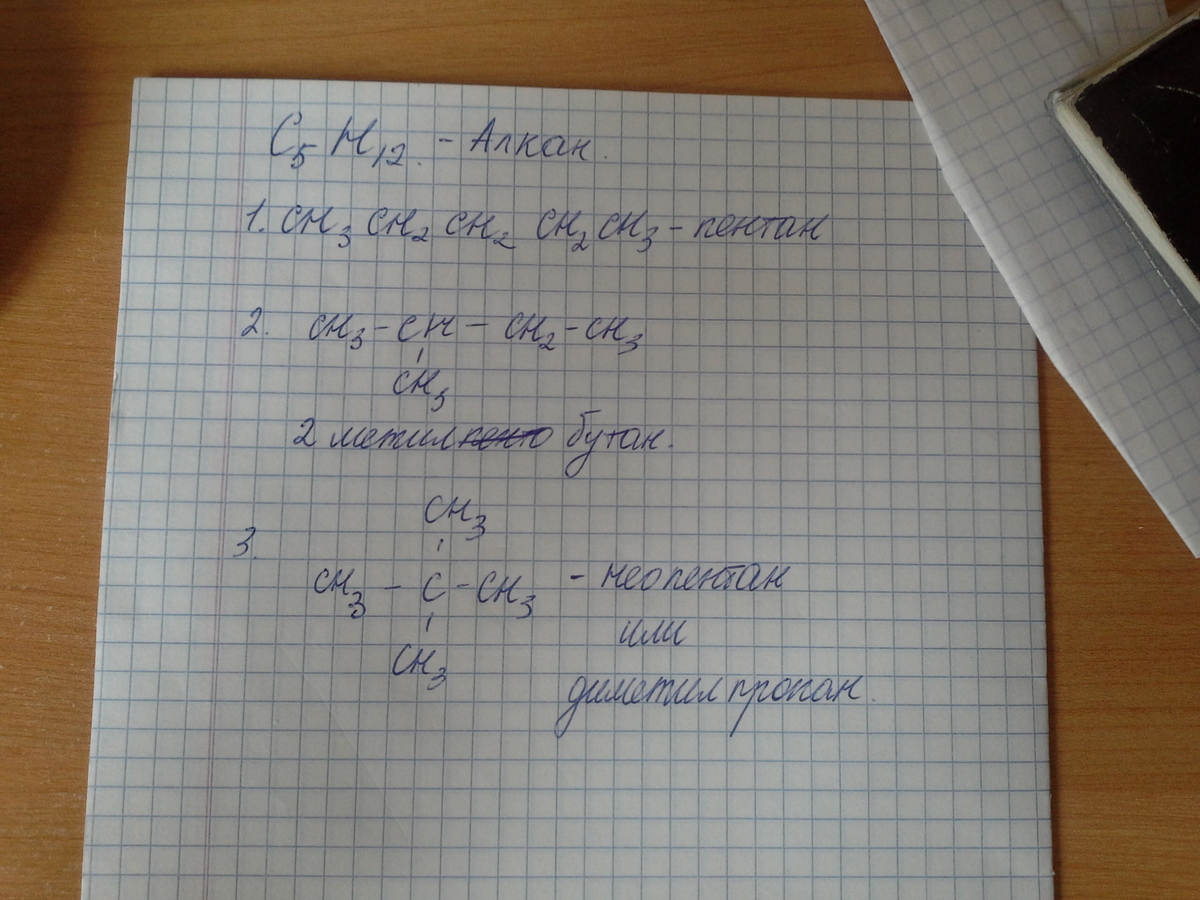 C₅H₁₂. - Алкан.
1. CH₃ CH₂ CH₂ CH₂ CH₃ - пентан
2. CH₃ - CH - CH₂ - CH₃
CH₃
2 метил бутан.
CH₃
3.
CH₃ - C - CH₃ - неопентан
или
CH₃
диметилпропан.